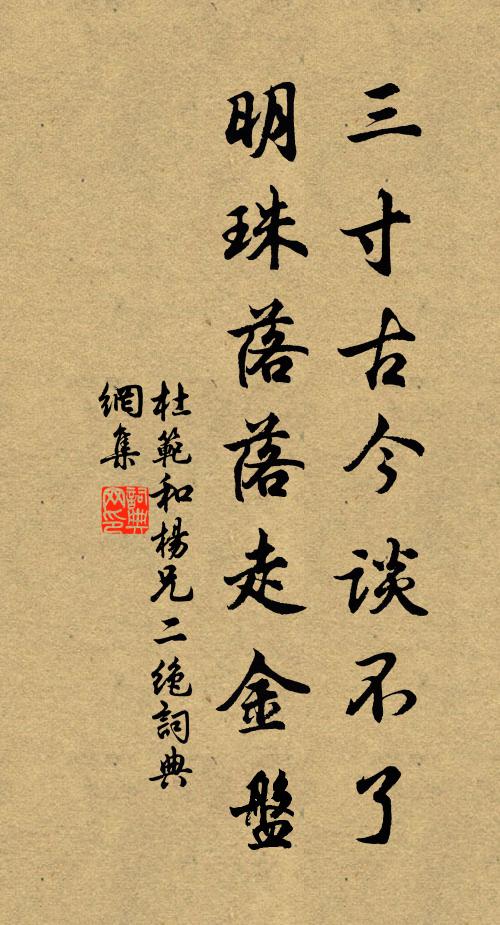 三寸古今談不了
明珠落落走金盤
杜範和楊兄二絕詞典
網集
詞典
网印